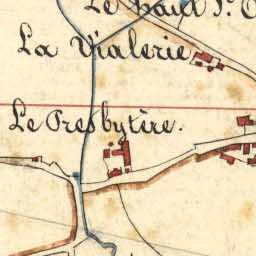 Le Haut St
La Vialerie
Le Presbytère.